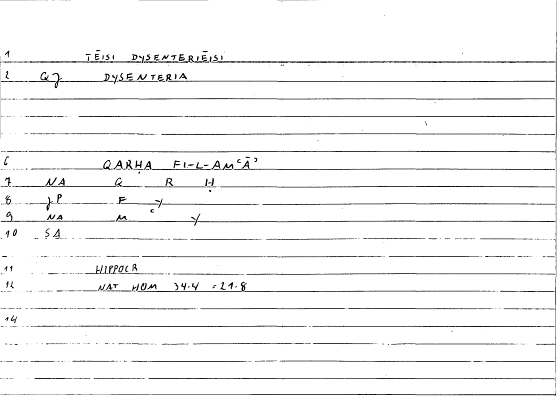 1 TĒISI DYSENTERIĒISI
2 QJ DYSENTERIA
6 QARḤA FI-L-AMʿĀʾ
7 NA Q R Ḥ
8 JP F Y
9 NA M ʿ Y
10 SA
11 HIPPOCR
12 NAT HOM 34.4 = 21.8
14